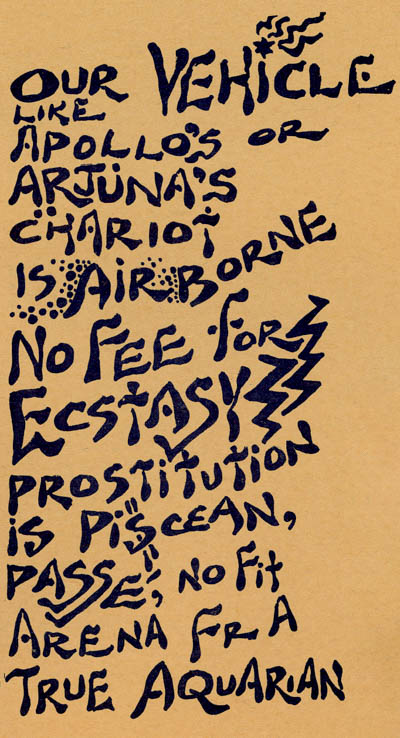 OUR VEHICLE
LIKE
APOLLO'S OR
ARJUNA'S
CHARIOT
IS AIR BORNE
NO FEE FOR
ECSTASY
PROSTITUTION
IS PISCEAN,
PASSÉ, NO FIT
ARENA FR A
TRUE AQUARIAN